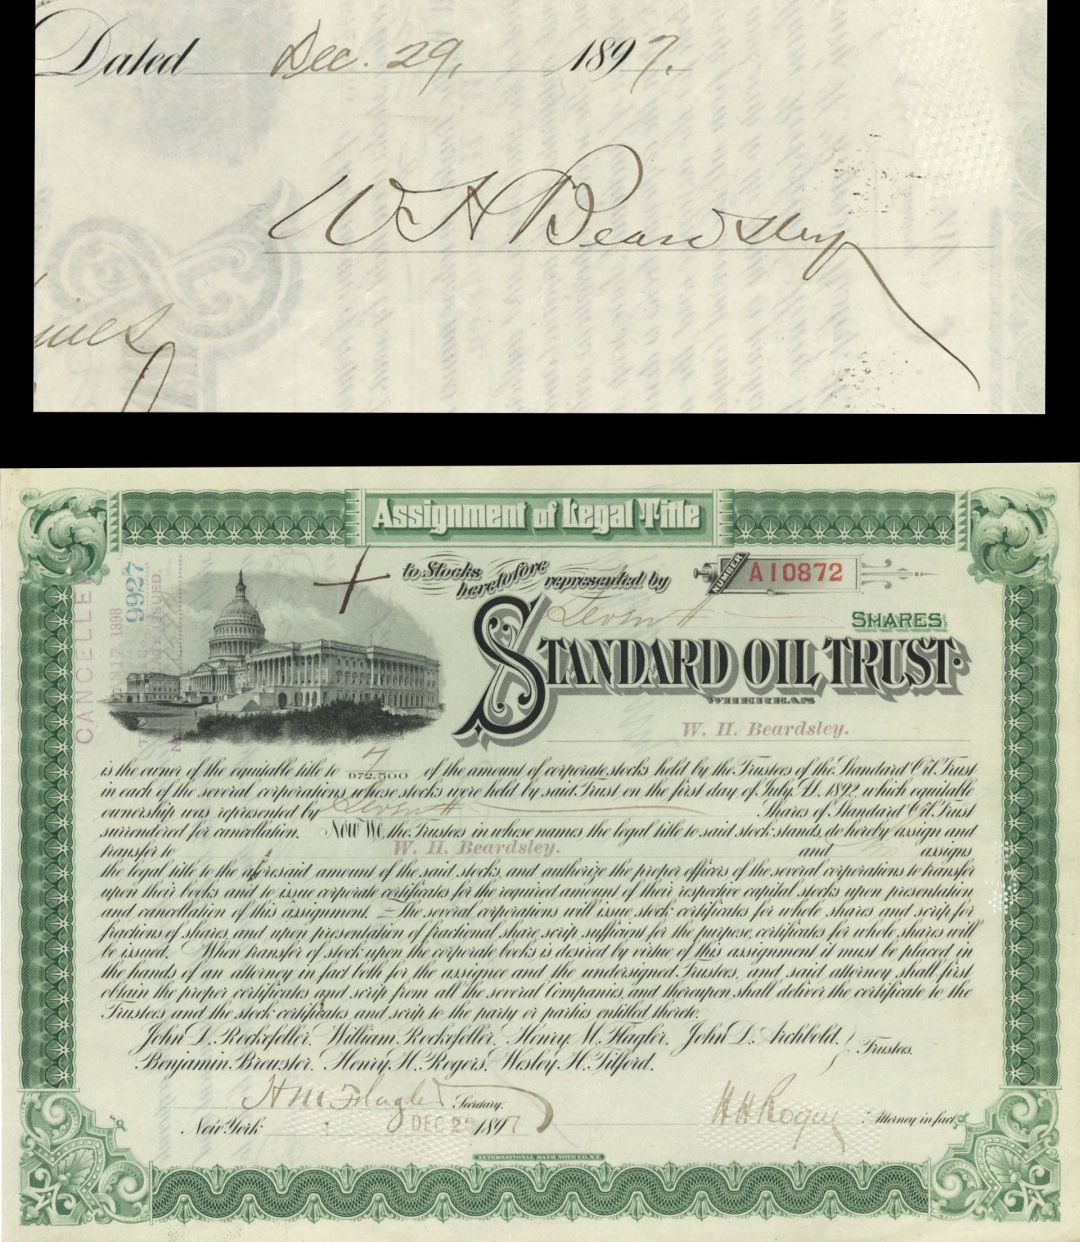 Dated Dec. 29, 1897.
W H Beardsley
Assignment of Legal Title
to Stocks heretofore represented by
NUMBER A10872
SHARES
STANDARD OIL TRUST.
WHEREAS
W. H. Beardsley.
CANCELLED
1898
9927
is the owner of the equitable title to 7/972,500 of the amount of corporate stocks held by the Trustees of the Standard Oil Trust
in each of the several corporations whose stocks were held by said Trust on the first day of July, A.D. 1892, which equitable
ownership was represented by Shares of Standard Oil Trust
surrendered for cancellation. Now We, the Trustees in whose names the legal title to said stock stands, do hereby assign and
transfer to W. H. Beardsley. and assigns
the legal title to the aforesaid amount of the said stocks, and authorize the proper officers of the several corporations to transfer
upon their books and to issue corporate certificates for the required amount of their respective capital stocks upon presentation
and cancellation of this assignment. The several corporations will issue stock certificates for whole shares and scrip for
fractions of shares, and upon presentation of fractional share scrip sufficient for the purpose, certificates for whole shares will
be issued. When transfer of stock upon the corporate books is desired by virtue of this assignment it must be placed in
the hands of an attorney in fact both for the assignee and the undersigned Trustees, and said attorney shall first
obtain the proper certificates and scrip from all the several Companies, and thereupon shall deliver the certificate to the
Trustees and the stock certificates and scrip to the party or parties entitled thereto.
John D. Rockefeller, William Rockefeller, Henry M. Flagler, John D. Archbold,
Benjamin Brewster, Henry H. Rogers, Wesley H. Tilford.
Trustees.
H M Flagler Secretary.
H H Rogers Attorney in fact.
New York DEC 29 1897
INTERNATIONAL BANK NOTE CO. N.Y.